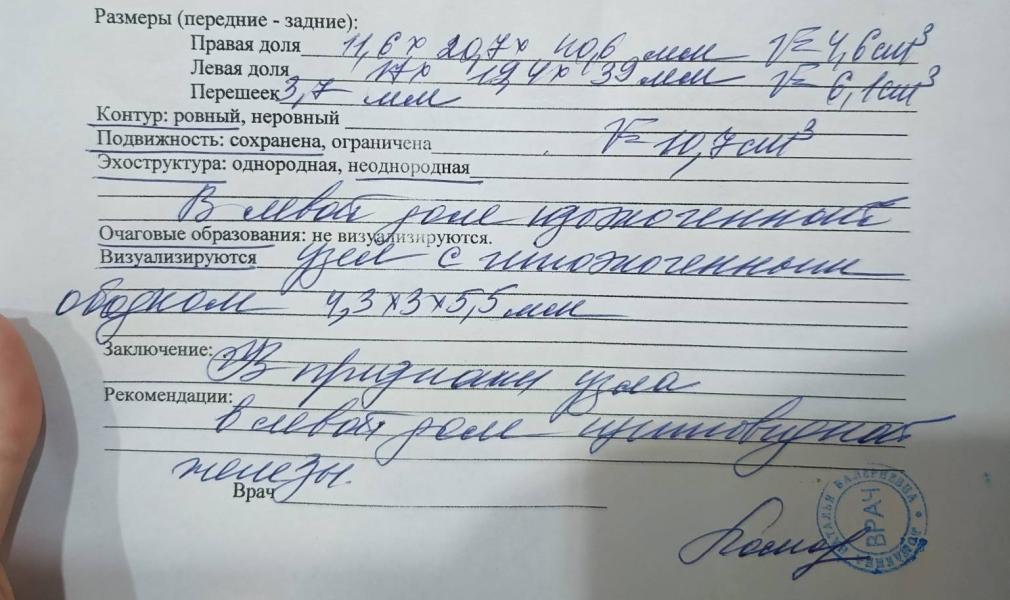 Размеры (передние - задние):
Правая доля 11,6 х 20,7 х 40,6 мм V= 4,6 см³
Левая доля 17 х 19,4 х 39 мм V= 6,1 см³
Перешеек 3,7 мм
Контур: ровный, неровный
Подвижность: сохранена, ограничена V= 10,7 см³
Эхоструктура: однородная, неоднородная
В левой доле изоэхогенный
Очаговые образования: не визуализируются.
Визуализируются узел с гипоэхогенным
ободком 4,3 х 3 х 5,5 мм
Заключение: Эхо признаки узла
Рекомендации:
в левой доле щитовидной
железы.
Врач
НАТАЛЬЯ ВАЛЕРИЕВНА
ВРАЧ